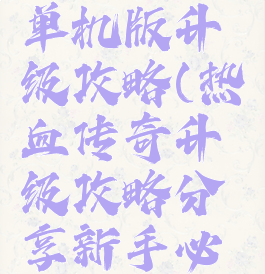 单机版升
级攻略(热
血传奇升
级攻略分
享新手必